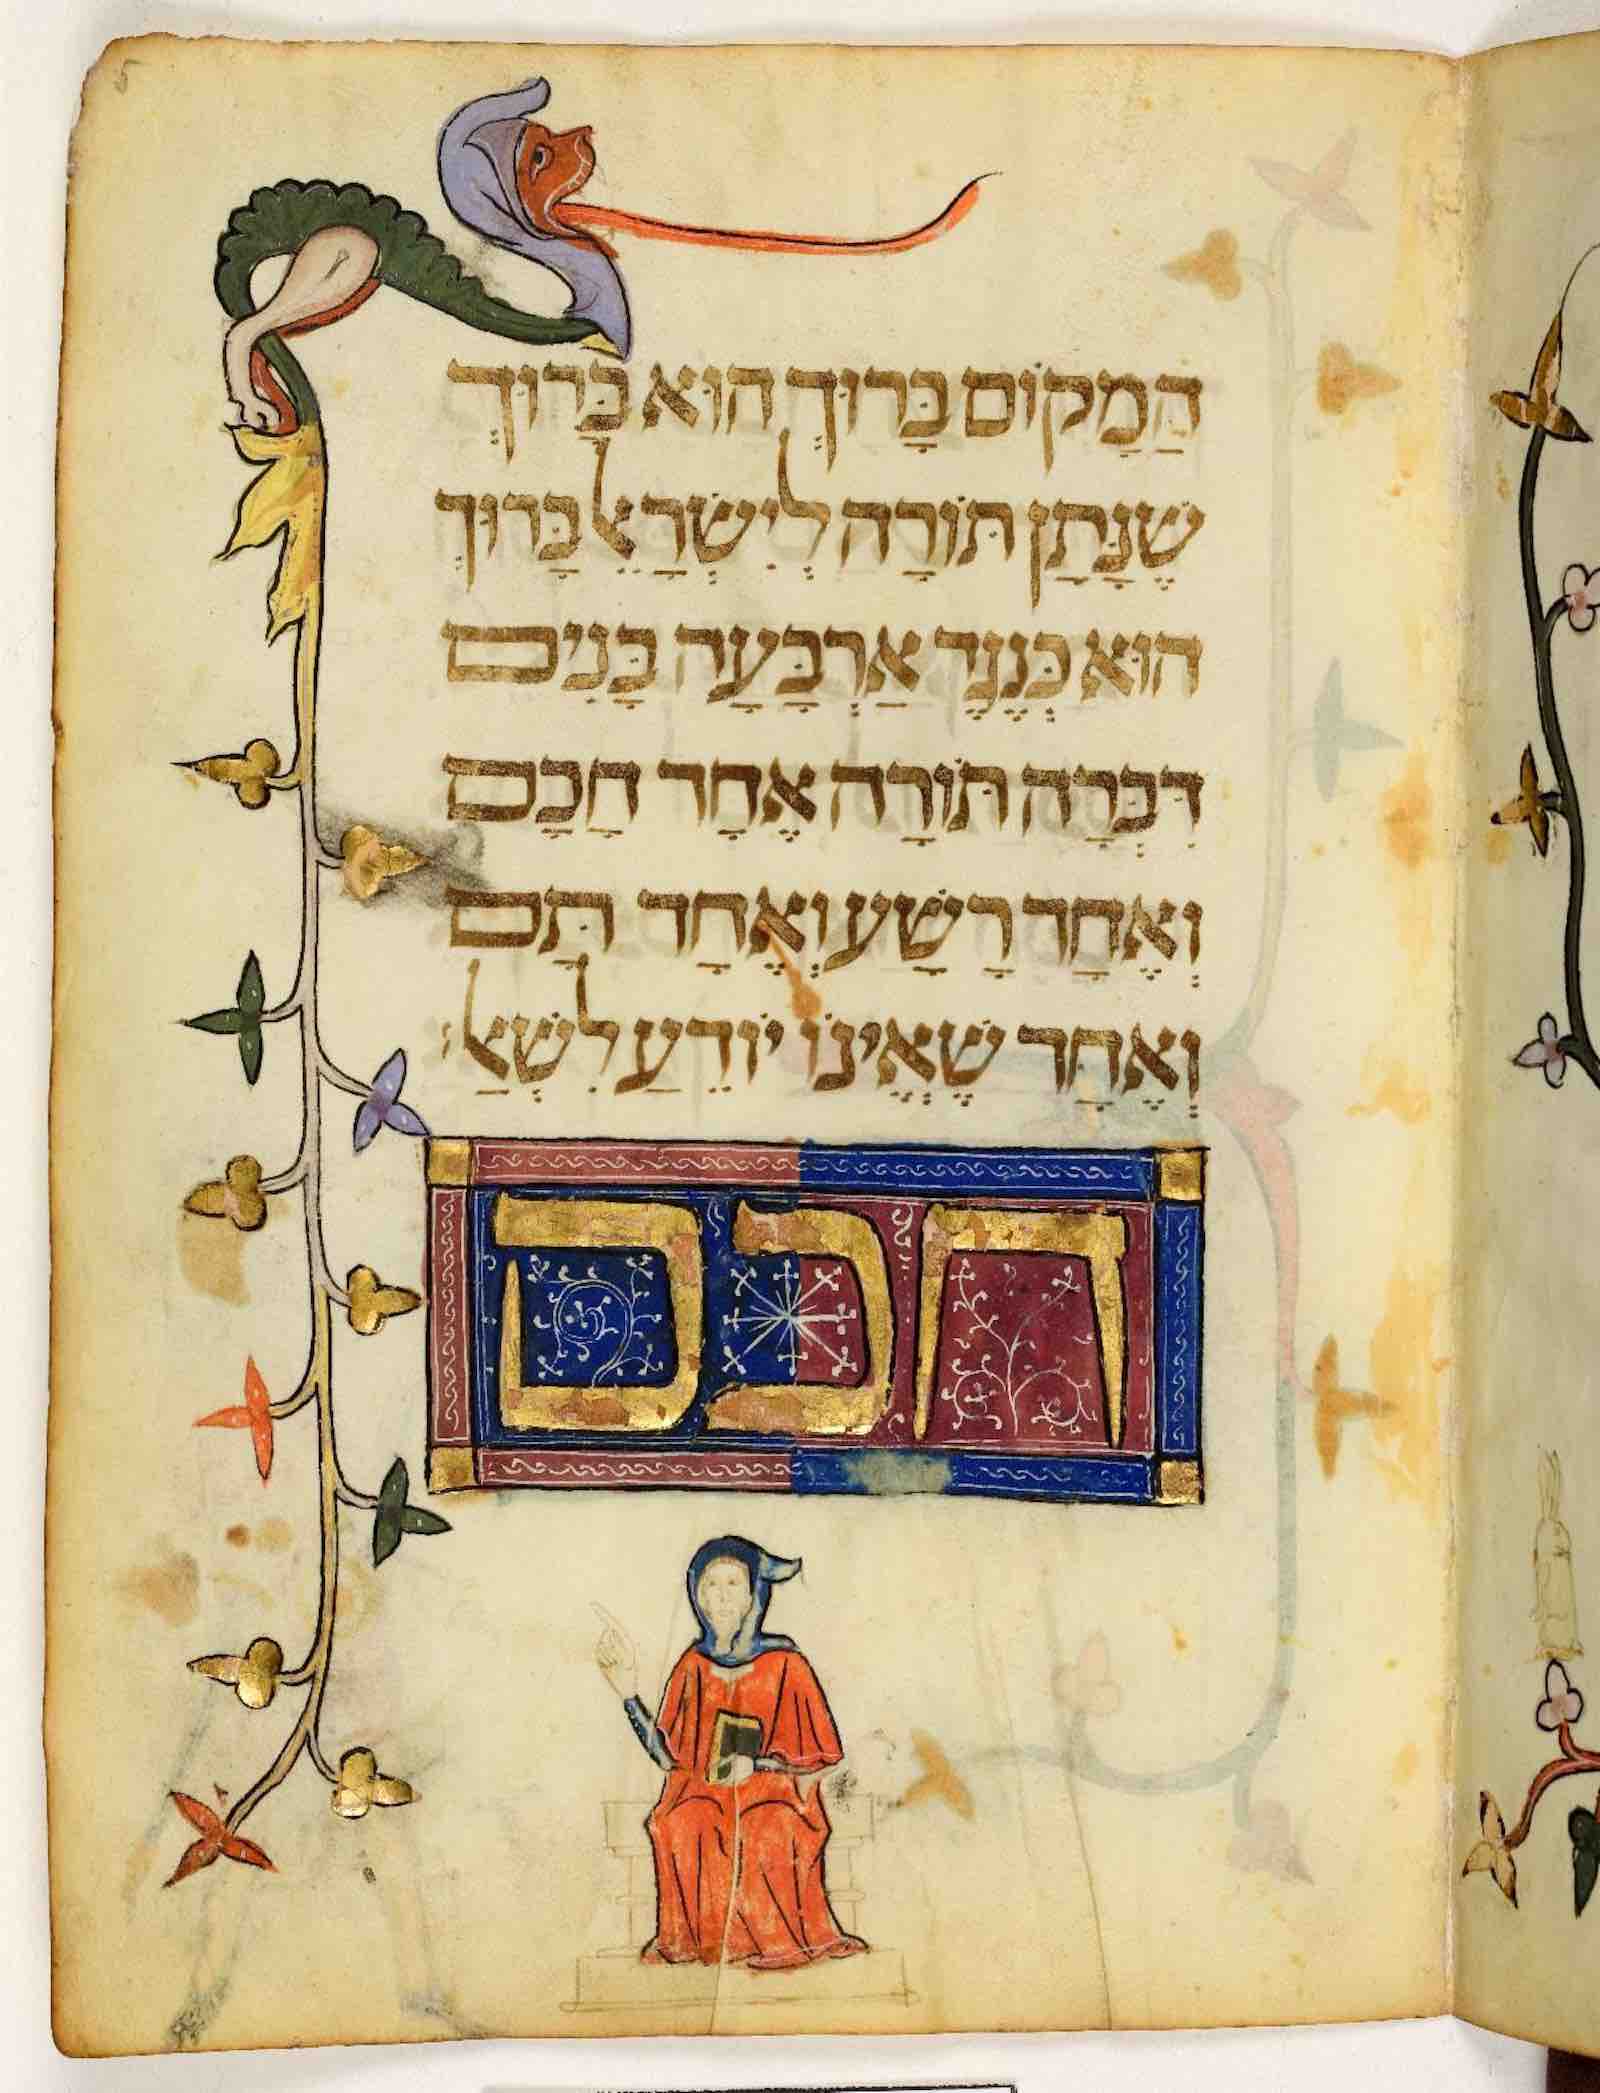 5
הַמָקוֹם בָּרוּךְ הוּא בָּרוּךְ
שֶׁנָּתַן תּוֹרָה לְיִשְׂרָאֵל בָּרוּךְ
הוּא כְּנֶגֶד אַרְבָּעָה בָּנִים
דִּבְּרָה תּוֹרָה אֶחָד חָכָם
וְאֶחָד רָשָׁע וְאֶחָד תָּם
וְאֶחָד שֶׁאֵינוֹ יוֹדֵעַ לִשְׁאַל׃
חכם